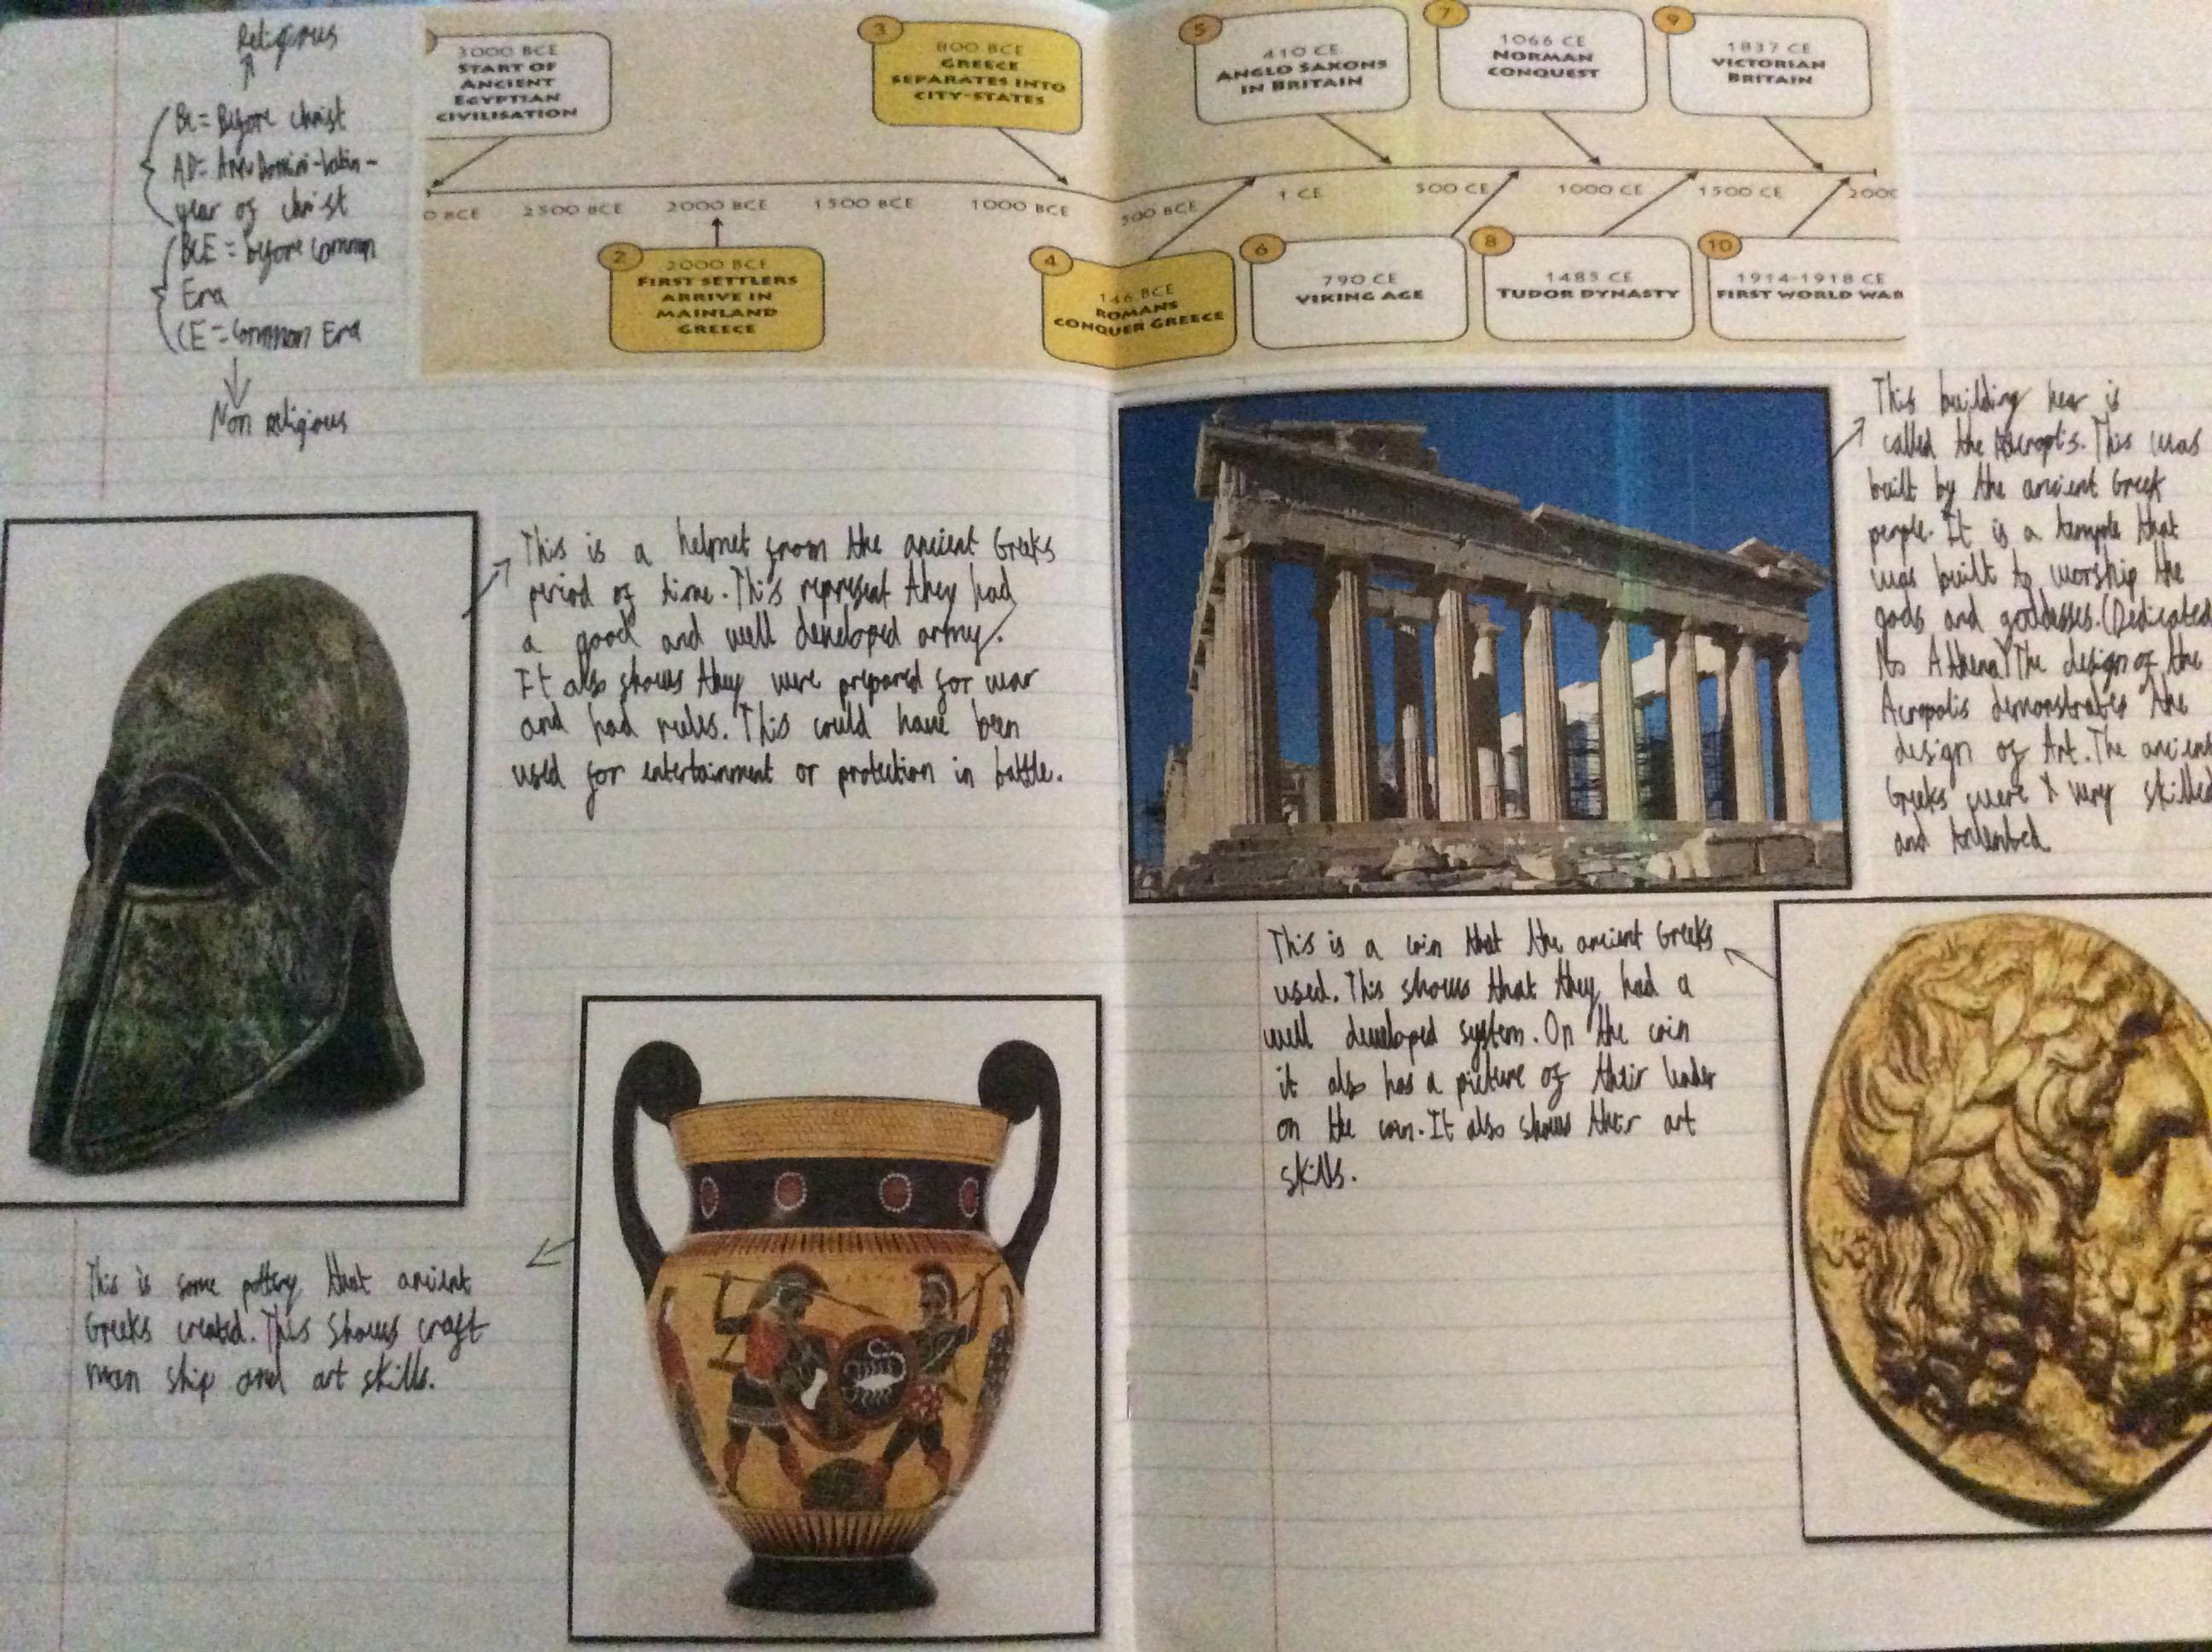 Religious
BC = Before Christ
AD = Ano Domini - Latin -
year of christ
BCE = before Common
Era
CE = Common Era
Non religious
3000 BCE
START OF
ANCIENT
EGYPTIAN
CIVILISATION
3
800 BCE
GREECE
SEPARATES INTO
CITY-STATES
5
410 CE
ANGLO SAXONS
IN BRITAIN
7
1066 CE
NORMAN
CONQUEST
9
1837 CE
VICTORIAN
BRITAIN
0 BCE 2500 BCE 2000 BCE 1500 BCE 1000 BCE 500 BCE 1 CE 500 CE 1000 CE 1500 CE 2000
2
2000 BCE
FIRST SETTLERS
ARRIVE IN
MAINLAND
GREECE
4
146 BCE
ROMANS
CONQUER GREECE
6
790 CE
VIKING AGE
8
1485 CE
TUDOR DYNASTY
10
1914-1918 CE
FIRST WORLD WAR
This is a helmet from the ancient Greeks
period of time. This represent they had
a good and well developed army.
It also shows they were prepared for war
and had rules. This could have been
used for entertainment or protection in battle.
This is some pottery that ancient
Greeks created. This shows craft
man ship and art skills.
This building hear is
called the . This was
built by the ancient Greek
people. It is a temple that
was built to worship the
gods and goddesses. (Dedicated
to Athena) The design of the
Acropolis demonstrates the
design of Art. The ancient
Greeks were very skilled
and
This is a coin that the ancient Greeks
used. This shows that they had a
well developed system. On the coin
it also has a picture of their leader
on the coin. It also shows their art
skills.